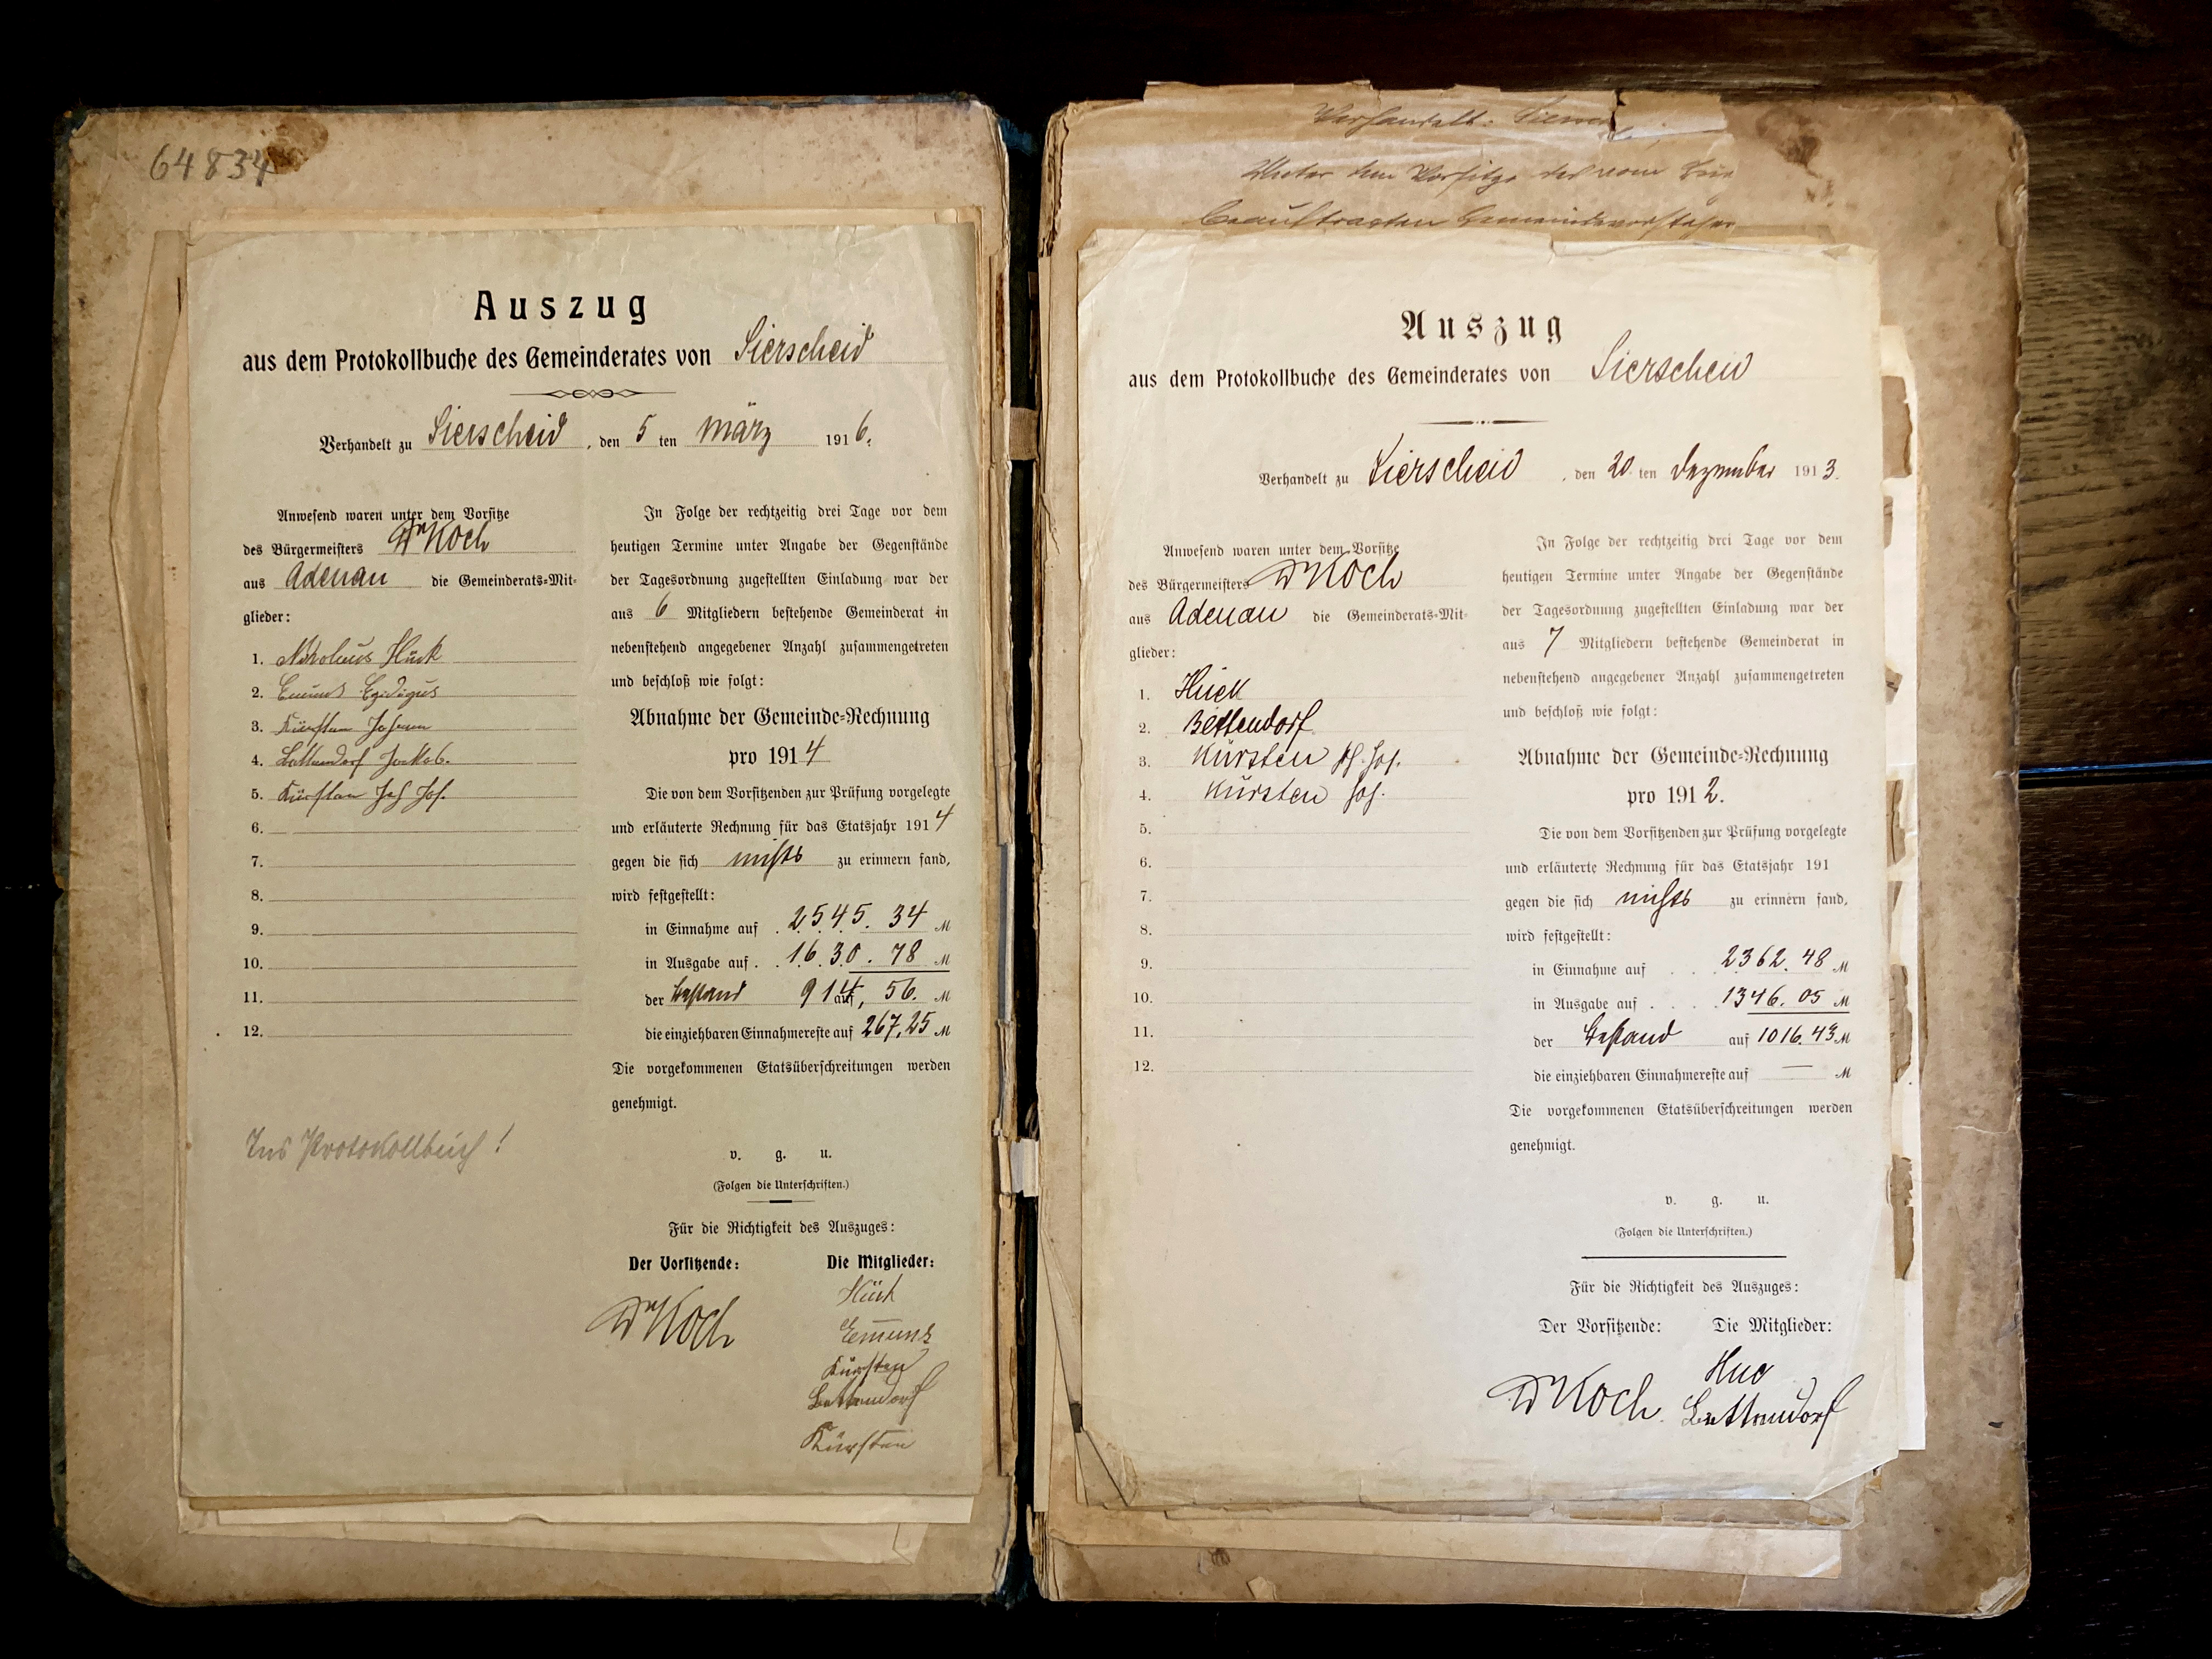 64834
Auszug
aus dem Protokollbuche des Gemeinderates von Sierscheid
Verhandelt zu Sierscheid, den 5 ten März 1916.
Anwesend waren unter dem Vorsitze
des Bürgermeisters Dr Koch
aus Adenau die Gemeinderats-Mit-
glieder:
1. Nikolaus Hück
2. Emunds Egidigus
3. Kürsten Johann
4. Bettendorf Jakob.
5. Kürsten Joh Jos.
6.
7.
8.
9.
10.
11.
12.
Ins Protokollbuch!
In Folge der rechtzeitig drei Tage vor dem
heutigen Termine unter Angabe der Gegenstände
der Tagesordnung zugestellten Einladung war der
aus 6 Mitgliedern bestehende Gemeinderat in
nebenstehend angegebener Anzahl zusammengetreten
und beschloß wie folgt:
Abnahme der Gemeinde-Rechnung
pro 1914
Die von dem Vorsitzenden zur Prüfung vorgelegte
und erläuterte Rechnung für das Etatsjahr 1914
gegen die sich nichts zu erinnern fand,
wird festgestellt:
in Einnahme auf . 2545. 34 M
in Ausgabe auf . . 1630. 78 M
der Bestand auf 914, 56. M
die einziehbaren Einnahmereste auf 267,25 M
Die vorgekommenen Etatsüberschreitungen werden
genehmigt.
v. g. u.
(Folgen die Unterschriften.)
Für die Richtigkeit des Auszuges:
Der Vorsitzende: Die Mitglieder:
Dr Koch
Hück
Emunds
Kürsten
Bettendorf
Kürsten
Verhandelt:
Unter dem Vorsitze des vom
beauftragten Gemeindevorsteher
Auszug
aus dem Protokollbuche des Gemeinderates von Sierscheid
Verhandelt zu Sierscheid, den 20 ten Dezember 1913.
Anwesend waren unter dem Vorsitze
des Bürgermeisters Dr Koch
aus Adenau die Gemeinderats-Mit-
glieder:
1. Hück
2. Bettendorf
3. Kürsten Jh. Jos.
4. Kürsten Joh.
5.
6.
7.
8.
9.
10.
11.
12.
In Folge der rechtzeitig drei Tage vor dem
heutigen Termine unter Angabe der Gegenstände
der Tagesordnung zugestellten Einladung war der
aus 7 Mitgliedern bestehende Gemeinderat in
nebenstehend angegebener Anzahl zusammengetreten
und beschloß wie folgt:
Abnahme der Gemeinde-Rechnung
pro 1912.
Die von dem Vorsitzenden zur Prüfung vorgelegte
und erläuterte Rechnung für das Etatsjahr 191
gegen die sich nichts zu erinnern fand,
wird festgestellt:
in Einnahme auf . . 2362. 48 M
in Ausgabe auf . . . . 1346. 05 M
der Bestand auf 1016. 43 M
die einziehbaren Einnahmereste auf — M
Die vorgekommenen Etatsüberschreitungen werden
genehmigt.
v. g. u.
(Folgen die Unterschriften.)
Für die Richtigkeit des Auszuges:
Der Vorsitzende: Die Mitglieder:
Dr Koch.
Bettendorf